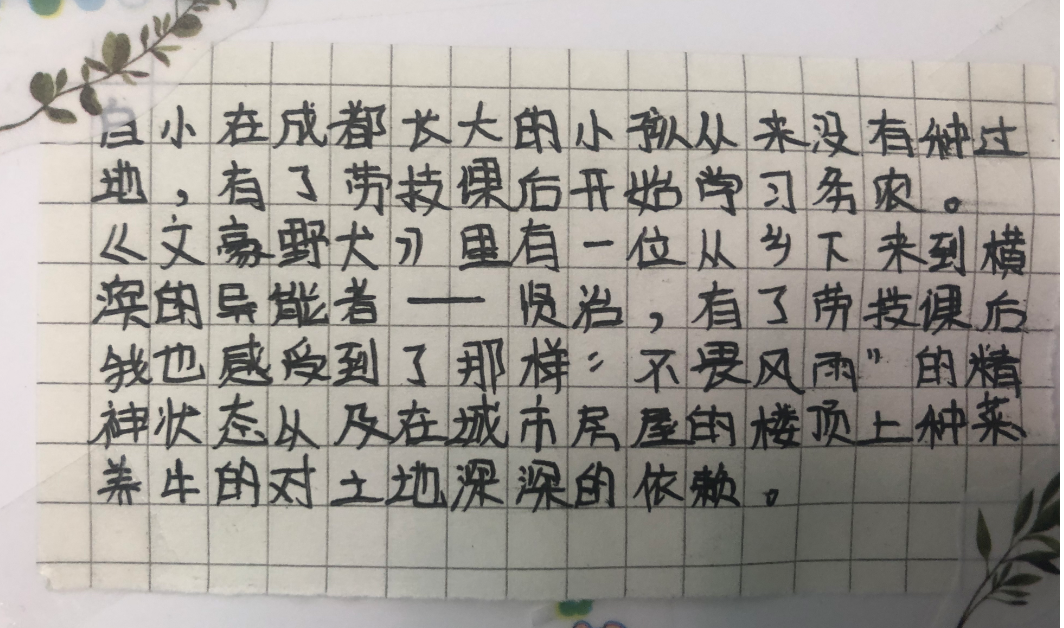 自小在成都长大的小孩从来没有种过
地，有了劳技课后开始学习务农。
《文豪野犬》里有一位从乡下来到横
滨的异能者——贤治，有了劳技课后
我也感受到了那样“不畏风雨”的精
神状态以及在城市房屋的楼顶上种菜
养牛的对土地深深的依赖。